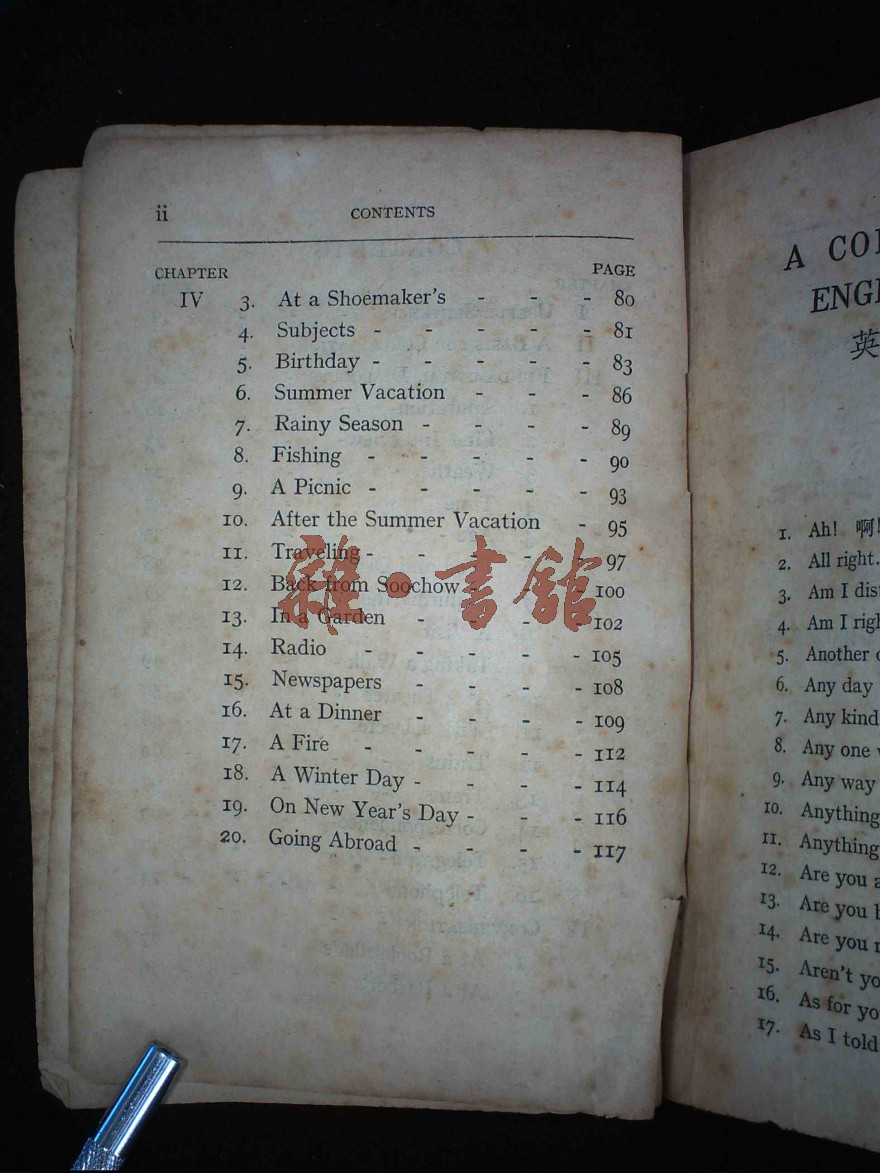 ii CONTENTS
CHAPTER PAGE
IV 3. At a Shoemaker's - - - 80
4. Subjects - - - - - 81
5. Birthday - - - - - 83
6. Summer Vacation - - - 86
7. Rainy Season - - - - 89
8. Fishing - - - - - 90
9. A Picnic - - - - - 93
10. After the Summer Vacation - 95
11. Traveling - - - - - 97
12. Back from Soochow - - - 100
13. In a Garden - - - - 102
14. Radio - - - - - 105
15. Newspapers - - - - 108
16. At a Dinner - - - - 109
17. A Fire - - - - - 112
18. A Winter Day - - - - 114
19. On New Year's Day - - - 116
20. Going Abroad - - - - 117
雜·書館
A
ENG
英
1. Ah! 啊!
2. All right.
3. Am I
4. Am I
5. Another
6. Any day
7. Any kind
8. Any one
9. Any way
10. Anything
11. Anything
12. Are you
13. Are you
14. Are you
15. Aren't
16. As for
17. As I told